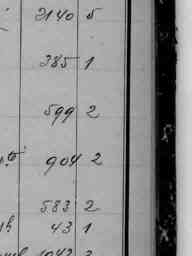 2140 5
385 1
599 2
904 2
583 2
43 1